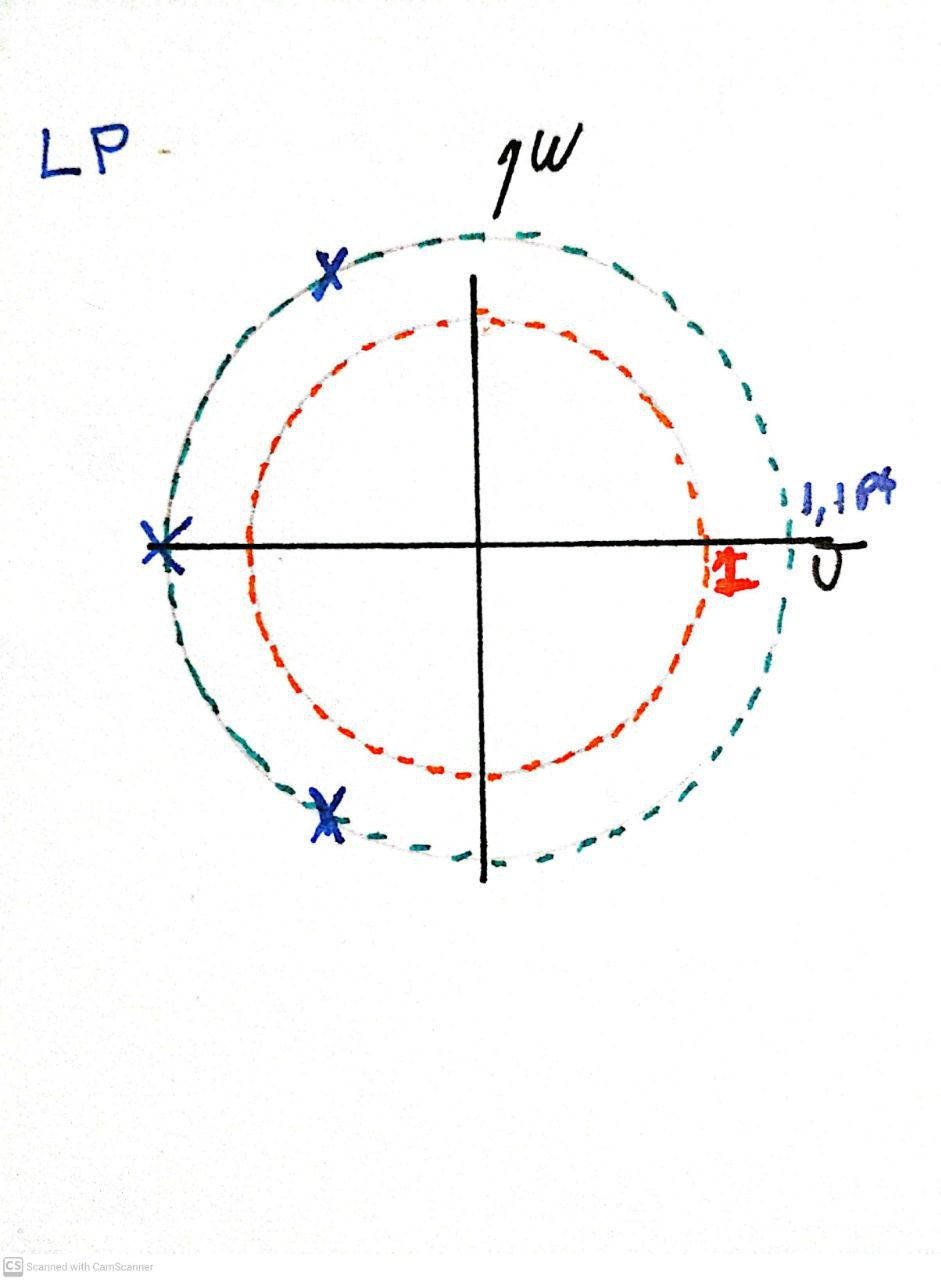 LP
jW
I
CS Scanned with CamScanner